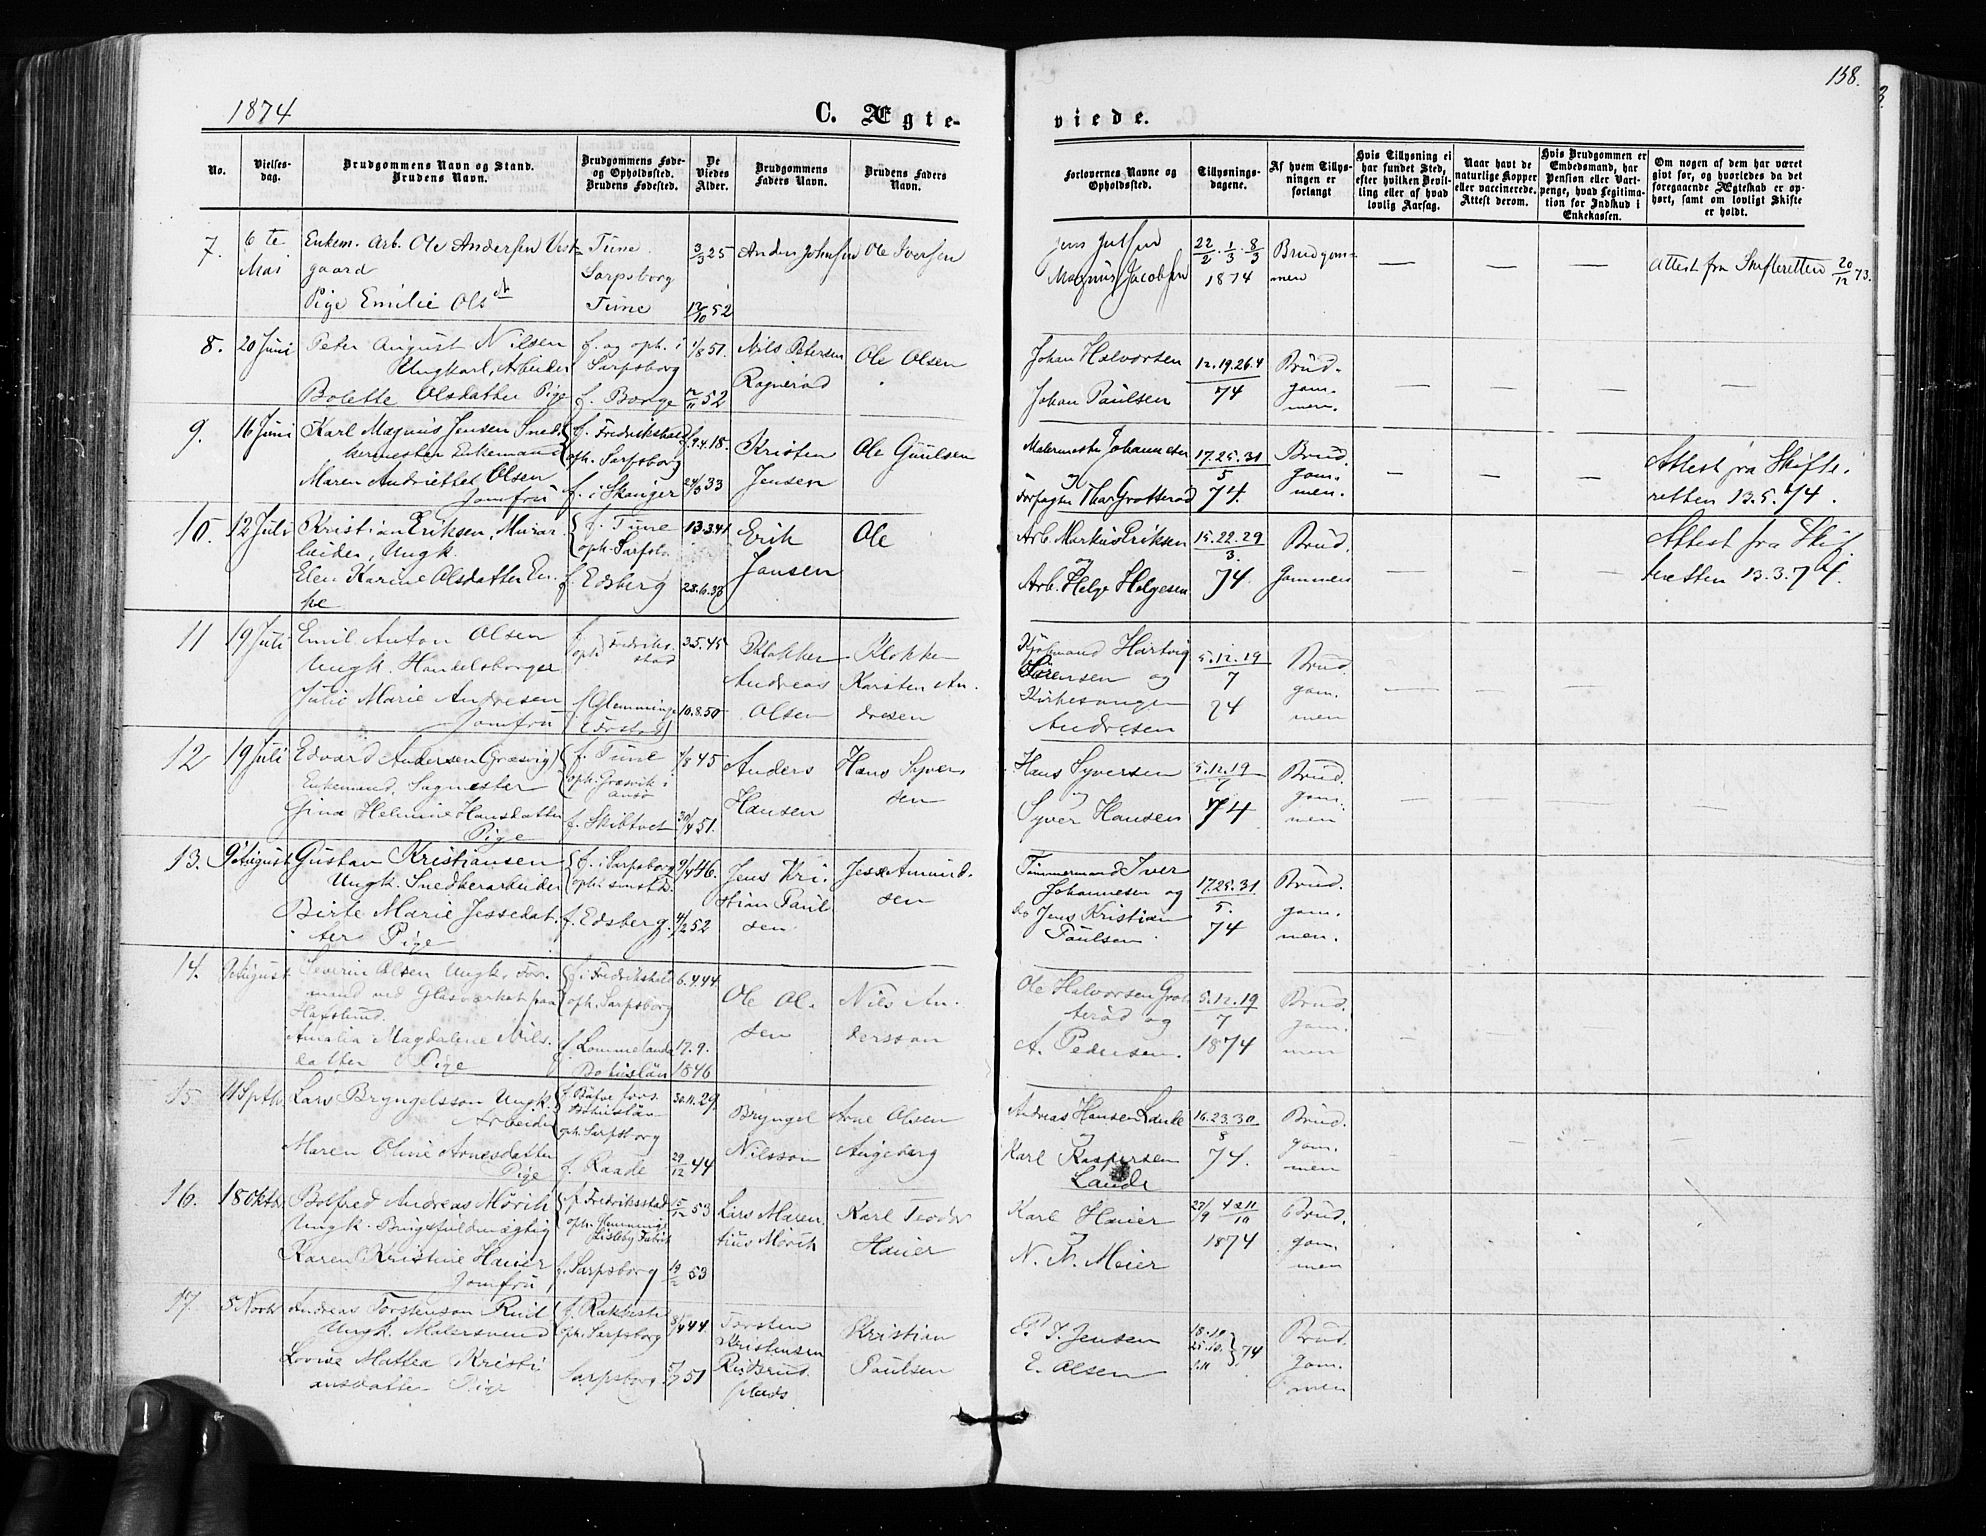 158.
1874
C. Ægte-
viede.
No.
Vielses-
dag.
Brudgommens Navn og Stand.
Brudens Navn.
Brudgommens Føde-
og Opholdssted.
Brudens Fødested.
De
Viedes
Alder.
Brudgommens
Faders Navn.
Brudens Faders
Navn.
Forlovernes Navne og
Opholdssted.
Tillysnings-
dagene.
Af hvem Tillys-
ningen er
forlangt
Hvis Tillysning ei
har fundet Sted,
efter hvilken Bevil-
ling eller af hvad
lovlig Aarsag.
Naar havt de
naturlige Kopper
eller vaccinerede.
Attest derom.
Hvis Brudgommen er
Embedsmand, har
Pension eller Vart-
penge, hvad Legitima-
tion for Indskud i
Enkekassen.
Om nogen af dem har været
gift før, og hvorledes da det
foregaaende Ægteskab er op-
hørt, samt om lovligt Skifte
er holdt.
7. 6te Mai
Enkem. Arb. Ole Andersen Vest-
gaard
Pige Emilie Olsdt
Tune
Sarpsborg
Tune
3/3 25
12/10 52
Anders Johnsen
Ole Iversen
Jens Julsen
Magnus Jacobsen
22/2 . 1/3 . 8/3
1874
Brudgom-
men
Attest fra Skifteretten 20/12 73.
8. 20 Juni
Peter August Nilsen
Ungkarl, Arbeider
Bolette Olsdatter Pige
f. og oph. i
Sarpsborg
f. Borge
1/8 51.
52
Nils Petersen
Ragnerød
Ole Olsen
Johan Halvorsen
Johan Paulsen
12.19.26.4
74
Brud-
gom-
men.
9. 16 Juni
Karl Magnus Jensen Sned-
kermester Enkemand
Maren Andriette Olsen
Jomfru
f. Fredrikshald
oph. Sarpsborg
f. i Skanger
9.4.18.
24/3 33
Kristen
Jensen
Ole Guulsen
Malermester Johannesen
og
Forpagter Thor Grotterød
17.25.31
5
74.
Brud.
gom-
men.
Attest fra Skifte-
retten 13.5.74.
10. 12 Juli
Kristian Eriksen, Murar-
beider, Ungk.
Elen Karine Olsdatter En-
ke
f. Tune
oph. Sarpsb.
f. Edsberg
13.3.41
Erik
Jansen
Ole
Arb. Markus Eriksen
og
Arb. Helge Helgesen
15.22.29
3.
74.
Brud-
gommen
Attest fra Skif-
teretten 13.3.74.
11 19 Juli
Emil Anton Olsen
Ungk. Handelsborger
Julie Marie Andresen
Jomfru
f.
oph. Fredrik-
stad
f. Glemminge
3.5.45
10.8.50
Klokker
Andreas
Olsen
Klokker
Karsten An-
dresen
Kjøbmand Hartvig
Sørensen og
Kirkesanger
Andresen
5.12.19
7
74
Brud-
gom-
men
12 19 Juli
Edvard Andersen (Græsvig)
Enkemand, Sagmester
Gina Helmine Hansdatter
Pige
f. Tune
oph. Græsvik i
Onsø
f. Skibtvet
1/8 45
30/4 51.
Anders
Hansen
Hans Syver-
sen
Hans Syversen
og
Syver Hansen
5.12.19
7
74
Brud.
gom-
men
13. 9 August
Gustav Kristiansen
Ungk. Snedkerarbeider
Birte Marie Jessedat-
ter Pige
f. i Sarpsborg
oph. smstd.
f. Edsberg.
9/4 46.
4/2 52
Jens Kri-
stian Paul-
sen
Jesse Amund-
sen
Tømmermand Iver
Johannesen og
do Jens Kristian
Paulsen.
17.25.31.
5.
74
Brud.
gom-
men.
14. 9 August
Severin Olsen Ungk. For-
mand ved Glasværket paa
Hafslund.
Amalia Magdalene Nils-
datter Pige
f. i Fredrikshald
oph. Sarpsborg
f. Lommelanda
Bohuslän
6.4.44
17.9.
1846
Ole Ol-
sen
Nils An-
dersson
Ole Halvorsen Grot-
terød og
A. Pedersen.
5.12.19
7
1874
Brud.
gom-
men
15. 11 Septb.
Lars Bryngelsson Ungk.
Arbeider
Maren Olivie Arnesdatter
Pige
Bohuslän
oph. Sarpsborg
f. Raade
30.11.29.
29/12 44
Bryngel
Nilsson
Arne Olsen
Augeberg
Andreas Hansen Lande
og
Karl Kaspersen
Lande
16.23.30
8
74.
Brud.
gom.
men
16. 18 Oktbr.
Botfred Andreas Mørch
Ungk. Brugsfuldmægtig
Karen Kristine Hauer
Jomfru,
f. Fredriksstad
oph. Glemminge
Lisleby Fabrik
f. Sarpsborg
15/12 53
14/2 53
Lars Maren-
tius Mørch
Karl Teodor
Hauer
Karl Hauer
og
N. N. Meier
27/9 4 & 11/10
1874
Brud.
gom-
men
17. 5 Novbr
Andreas Torstenson Ruud
Ungk. Malersvend
Lovise Mattea Kristi
ansdatter Pige
f. Rakkestad
oph. Sarpsborg
Sarpsborg
44.
5/7 51
Torsten
Kristensen
Rudsrud
plads
Kristian
Paulsen
P. J. Jensen
E. Olsen
18.10
25.10.
1.11
74
Brud-
gom-
men